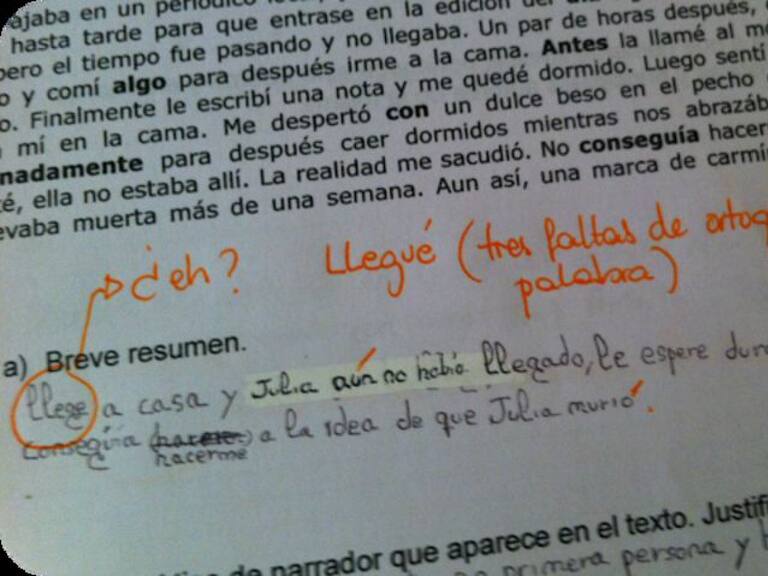 hasta tarde para que entrase en la edición
pero el tiempo fue pasando y no llegaba. Un par de horas después,
o y comí algo para después irme a la cama. Antes la llamé al
o. Finalmente le escribí una nota y me quedé dormido. Luego sentí
mí en la cama. Me despertó con un dulce beso en el pecho
nadamente para después caer dormidos mientras nos abrazáb
té, ella no estaba allí. La realidad me sacudió. No conseguía hacer
evaba muerta más de una semana. Aun así, una marca de carmí
¿eh? LLegué (tres faltas de ortog
palabra)
a) Breve resumen.
llege a casa y Julia aún no habia llegado, le espere
conseguia (hacerme) a la idea de que Julia murió.
hacerme
de narrador que aparece en el texto. Justifi
primera persona y